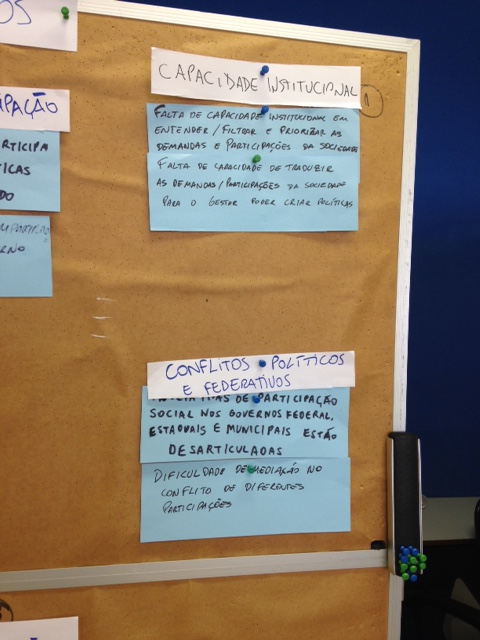 OS
IPAÇÃO
ARTICIPA
TICAS
DO
ERNO
CAPACIDADE INSTITUCIONAL
1
FALTA DE CAPACIDADE INSTITUCIONAL EM
ENTENDER/FILTRAR E PRIORIZAR AS
DEMANDAS E PARTICIPAÇÕES DA SOCIEDADE
FALTA DE CAPACIDADE DE TRADUZIR
AS DEMANDAS/PARTICIPAÇÕES DA SOCIEDADE
PARA O GESTOR PODER CRIAR POLÍTICAS
CONFLITOS POLÍTICOS
E FEDERATIVOS
INICIATIVAS DE PARTICIPAÇÃO
SOCIAL NOS GOVERNOS FEDERAL,
ESTADUAIS E MUNICIPAIS ESTÃO
DESARTICULADAS
DIFICULDADE DE MEDIAÇÃO NO
CONFLITO DE DIFERENTES
PARTICIPAÇÕES